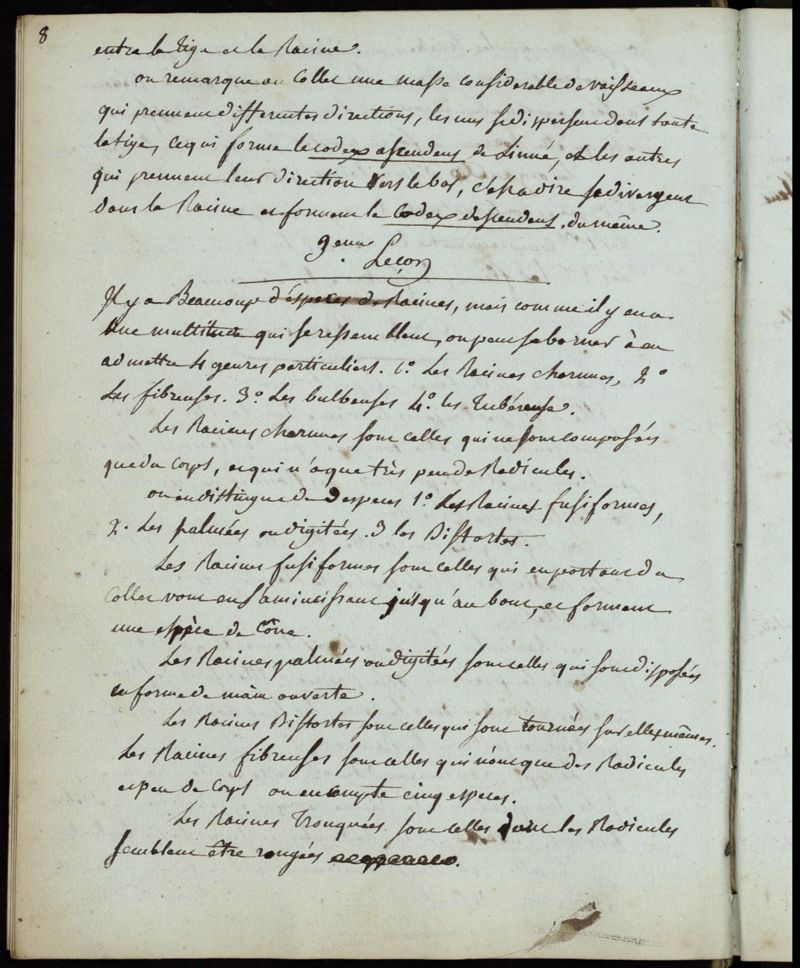 8
entre la tige et la Racine.
on remarque au Collet une masse considerable de vaisseaux
qui prennent differentes directions, les uns se dispersent dans toute
la tige, ce qui forme le codex ascendens de Linné, et les autres
qui prennent leur direction vers le bas, c'est a dire se divergent
dans la Racine et forment le Codex descendens du même.
9eme Leçon
Il y a Beaucoup d'éspeces de Racines, mais comme il y en a
Une multitude qui se ressemblent, on peut se borner à en
admettre 4 genres particuliers. 1º. Les Racines charnues, 2º
Les fibreuses. 3º. Les bulbeuses 4º. les Tubéreuse.
Les Racines charnues sont celles qui ne sont composées
que du corps, et qui n'a que très peu de Radicules.
on en distingue de 3 especes 1º. Les Racines fusiformes,
2. Les palmées ou digitées. 3 les Bistortes.
Les Racines fusiformes sont celles qui en partant du
Collet vont en s'amincissant jusqu'au bout, et forment
une espèce de Cône.
Les Racines palmées ou digitées sont celles qui sont disposées
en forme de main ouverte.
Les Racines Bistortes sont celles qui sont tournées sur elles mêmes.
Les Racines fibreuses sont celles qui n'ont que des Radicules
et peu de Corps on en compte cinq especes.
Les Racines Tronquées sont celles dont les Radicules
semblent être rongées